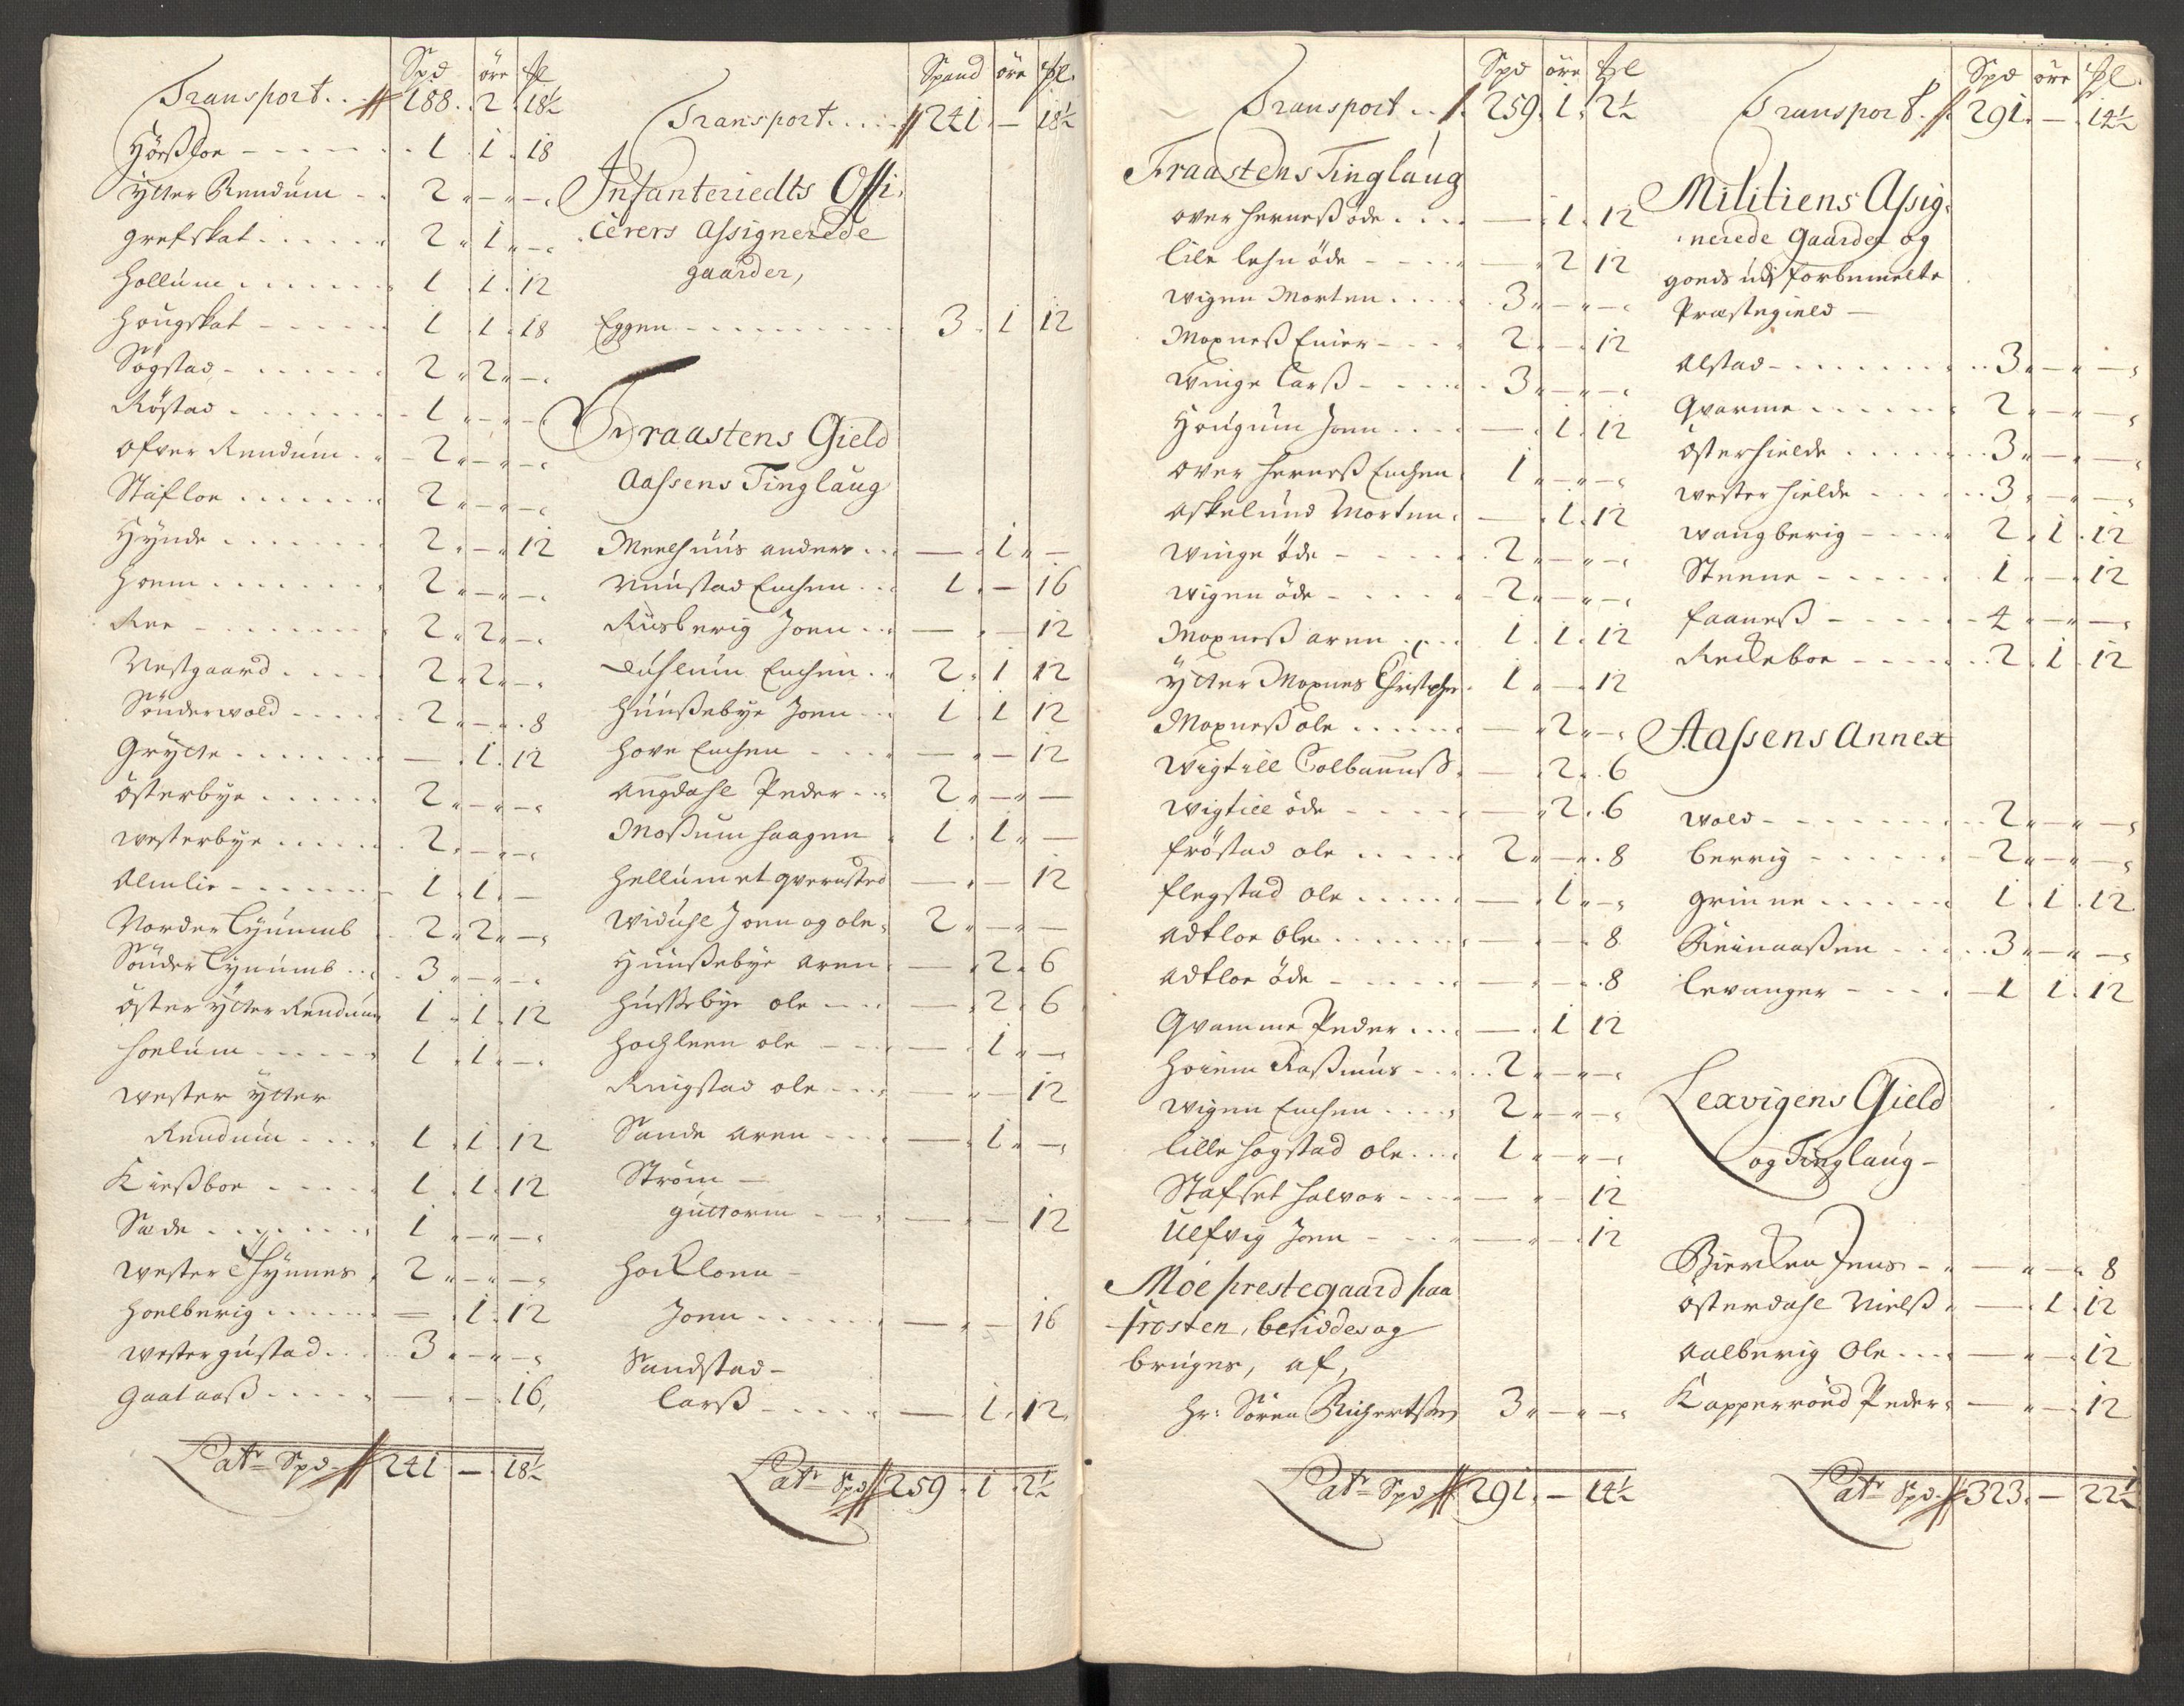 Spd öre pl
Transport . . 188. 2. 18½
Hörßloe - - - - 1. 1. 18
Ytter Rendum - - 2. - . -
Grefskat . . . . . 2. 1. -
Hollum . . . . . . 1. 1. 12
Hougskat - - - - 1. 1. 18
Sögstad - . . . . 2. 2. -
Röstad . . . . . . 1. - . -
Ofver Rendum . . 2. - . -
Stafloe . . . . . . 2. - . -
Hynde . . . . . . 2. - . 12
Hoem . . . . . . . 2. - . -
Ree - . . . . . . . 2. 2. -
Nestgaard . . . . 2. 2. -
Sönderwold . . . . 2. - . 8
Grytte . . . . . . - . 1. 12
österbye . . . . . 2. - . -
westerbye . . . . 2. - . -
Almlie - . . . . . 1. 1. -
Norder Tynumb 2. 2. -
Sönder Tynumb . . 3. - . -
öster ytter Rendum 1. 1. 12
hoelum . . . . . 1. 1. -
wester ytter
Rendum . . . . 1. 1. 12
Kießboe . . . . . 1. 1. 12
Sæde . . . . . . . 1. - . -
wester Thynnes 2. - . -
hoelberig . . . . . - . 1. 12
westergustad . . . 3. - . -
Gaataaß . . . . . - . - . 16
Latr Spd 241 - . 18½
Spand öre pl.
Transport . . . . 241. - 18½
Infanteriedts Offi-
cerers Assignerede
gaarder,
Eggen . . . . . . . . 3. 1 12
Fraastens Gield
Aassens Tinglaug
Meelhuus anders . . - . 1. -
Munstad Enchen . . . 1. - 16
Riisberig Joen . . . - . - 12
Duhlum Enchen . . 2. 1 12
Hunßebye Joen . . . 1. 1 12
Hove Enchen - . . . - . - 12
Augdahl Peder . . . 2. - . -
Moßum haagen . 1. 1. -
Hellum et qvernsted - . - 12
Widuhl Joen og ole . 2. - . -
Hunßebye aren - . 2. 6
Hussebye ole - - . . - . 2. 6
Hochleen ole - . . . - . 1. -
Ringstad ole - . . . - . - 12
Sande aren . . . . - . 1. -
Ström -
guttorm - . . . - . - 12
Hocklona -
Joen . . . . . . - . - 16
Sandstad -
Larß . . . . . . - . 1. 12
Latr Spd 259. 1. 2½
Spd öre pl
Transport . . 259. 1. 2½
Fraastens Tinglaug
over herneß öde . . . . - . 1. 12
lile lehn öde - . . . . - . 2 12
wigen Morten . . . . 3. - . -
Moxneß Einer - . . . 2. - . 12
winge Larß - . . . . 3. - . -
Hougum Joen . . . . - . 1. 12
over herneß Enchen 1. - . -
Askelund Morten . - . 1. 12
winge öde - . . . . . 2. - . -
wigen öde - . . . . . 2. - . -
Moxneß aren . . . . 1. 1. 12
ytter Moxnes Christopher 1. - . 12
Moxneß ole . . . . . . - . 2. -
wigtill Colbannuß - . 2. 6
wigtill öde - . . . . . - . 2. 6
fröstad ole . . . . . . 2. - . 8
flegstad ole . . . . . . - . 1. -
adtloe ole . . . . . . . - . - . 8
adtloe öde - . . . . . . - . - . 8
Qvamme Peder . . . . - . 1 12
hoiem Raßmus - . . . 2. - . -
wigen Enchen . . . . 2. - . -
lille hogstad ole . . . 1. - . -
Stafset halvor . . . . - . - 12
Ulfvig Joen - . . . . . - . - . 12
Moe prestegaard paa
frosten, besiddes og
bruges, af,
Hr: Sören Richertsen 3. - . -
Latr Spd 291. - 14½
Spd öre pl.
Transport . 291. - . 14½
Militiens Assig-
nerede Gaarder og
goeds udj forbemelte
Præstegield -
Alstad - . . . . . . . . 3. - . -
Qvarme . . . . . . . 2. - . -
österhielde . . . . . . 3. - . -
westerhielde - . . . . 3. - . -
wangberig - . . . . 2. 1. 12
Steene - . . . . . . 1. - . 12
faaneß - . . . . . . 4. - . -
Reckeboe - . . . . . 2. 1. 12
Aassens Annex
wold - . . . . . . . . 2. - . -
berrig . . . . . . . . 2. - . -
grinne . . . . . . . 1. 1. 12
Reinaaßen . . . . . 3. - . -
levanger - . . . . . 1 1. 12
Lexvigens Gield
og Tinglaug -
Bierken Jens - . - . - . 8
österdahl Nielß . - . 1. 12
aalberig ole . . . . - . - . 12
Kopperroed Peder . - . - . 12
Latr Spd. 323. - 22½